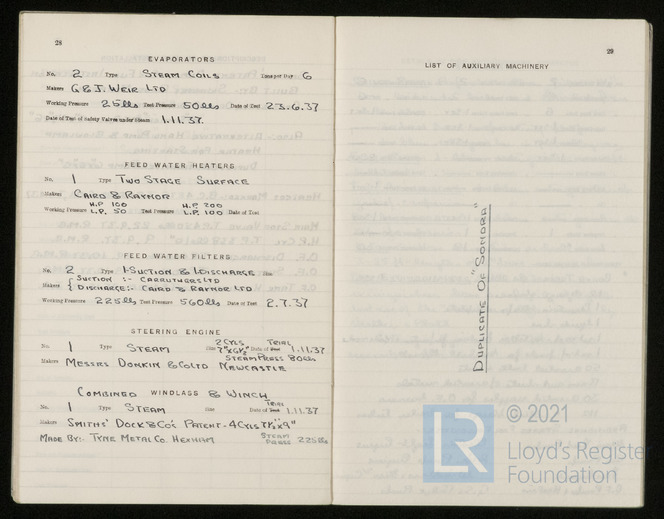 28
EVAPORATORS
No. 2 Type STEAM COILS Tons per Day 6
Makers G & J. WEIR LTD
Working Pressure 25 lbs Test Pressure 50 lbs Date of Test 23.6.37
Date of Test of Safety Valves under Steam 1.11.37.
FEED WATER HEATERS
No. 1 Type TWO STAGE SURFACE
Makers CAIRD & RAYNOR
H.P. 100 H.P. 200
Working Pressure L.P. 50 Test Pressure L.P. 100 Date of Test
FEED WATER FILTERS
No. 2 Type 1-SUCTION & 1-DISCHARGE Size
Makers { SUCTION :- CARRUTHERS LTD
DISCHARGE:- CAIRD & RAYNOR LTD
Working Pressure 225 lbs Test Pressure 560 lbs Date of Test 2.7.37
STEERING ENGINE
2 CYLS TRIAL
No. 1 Type STEAM Size 7"x6½" Date of Test 1.11.37
STEAM PRESS 80 lbs
Makers MESSRS DONKIN & CO LTD NEWCASTLE
COMBINED WINDLASS & WINCH
TRIAL
No. 1 Type STEAM Size Date of Test 1.11.37
Makers SMITHS' DOCK & CO'S PATENT - 4 CYLS 7½"x9"
MADE BY:- TYNE METAL CO. HEXHAM STEAM PRESS 225 lbs
29
LIST OF AUXILIARY MACHINERY
DUPLICATE OF "SOMORA"
© 2021
LR
Lloyd's Register
Foundation